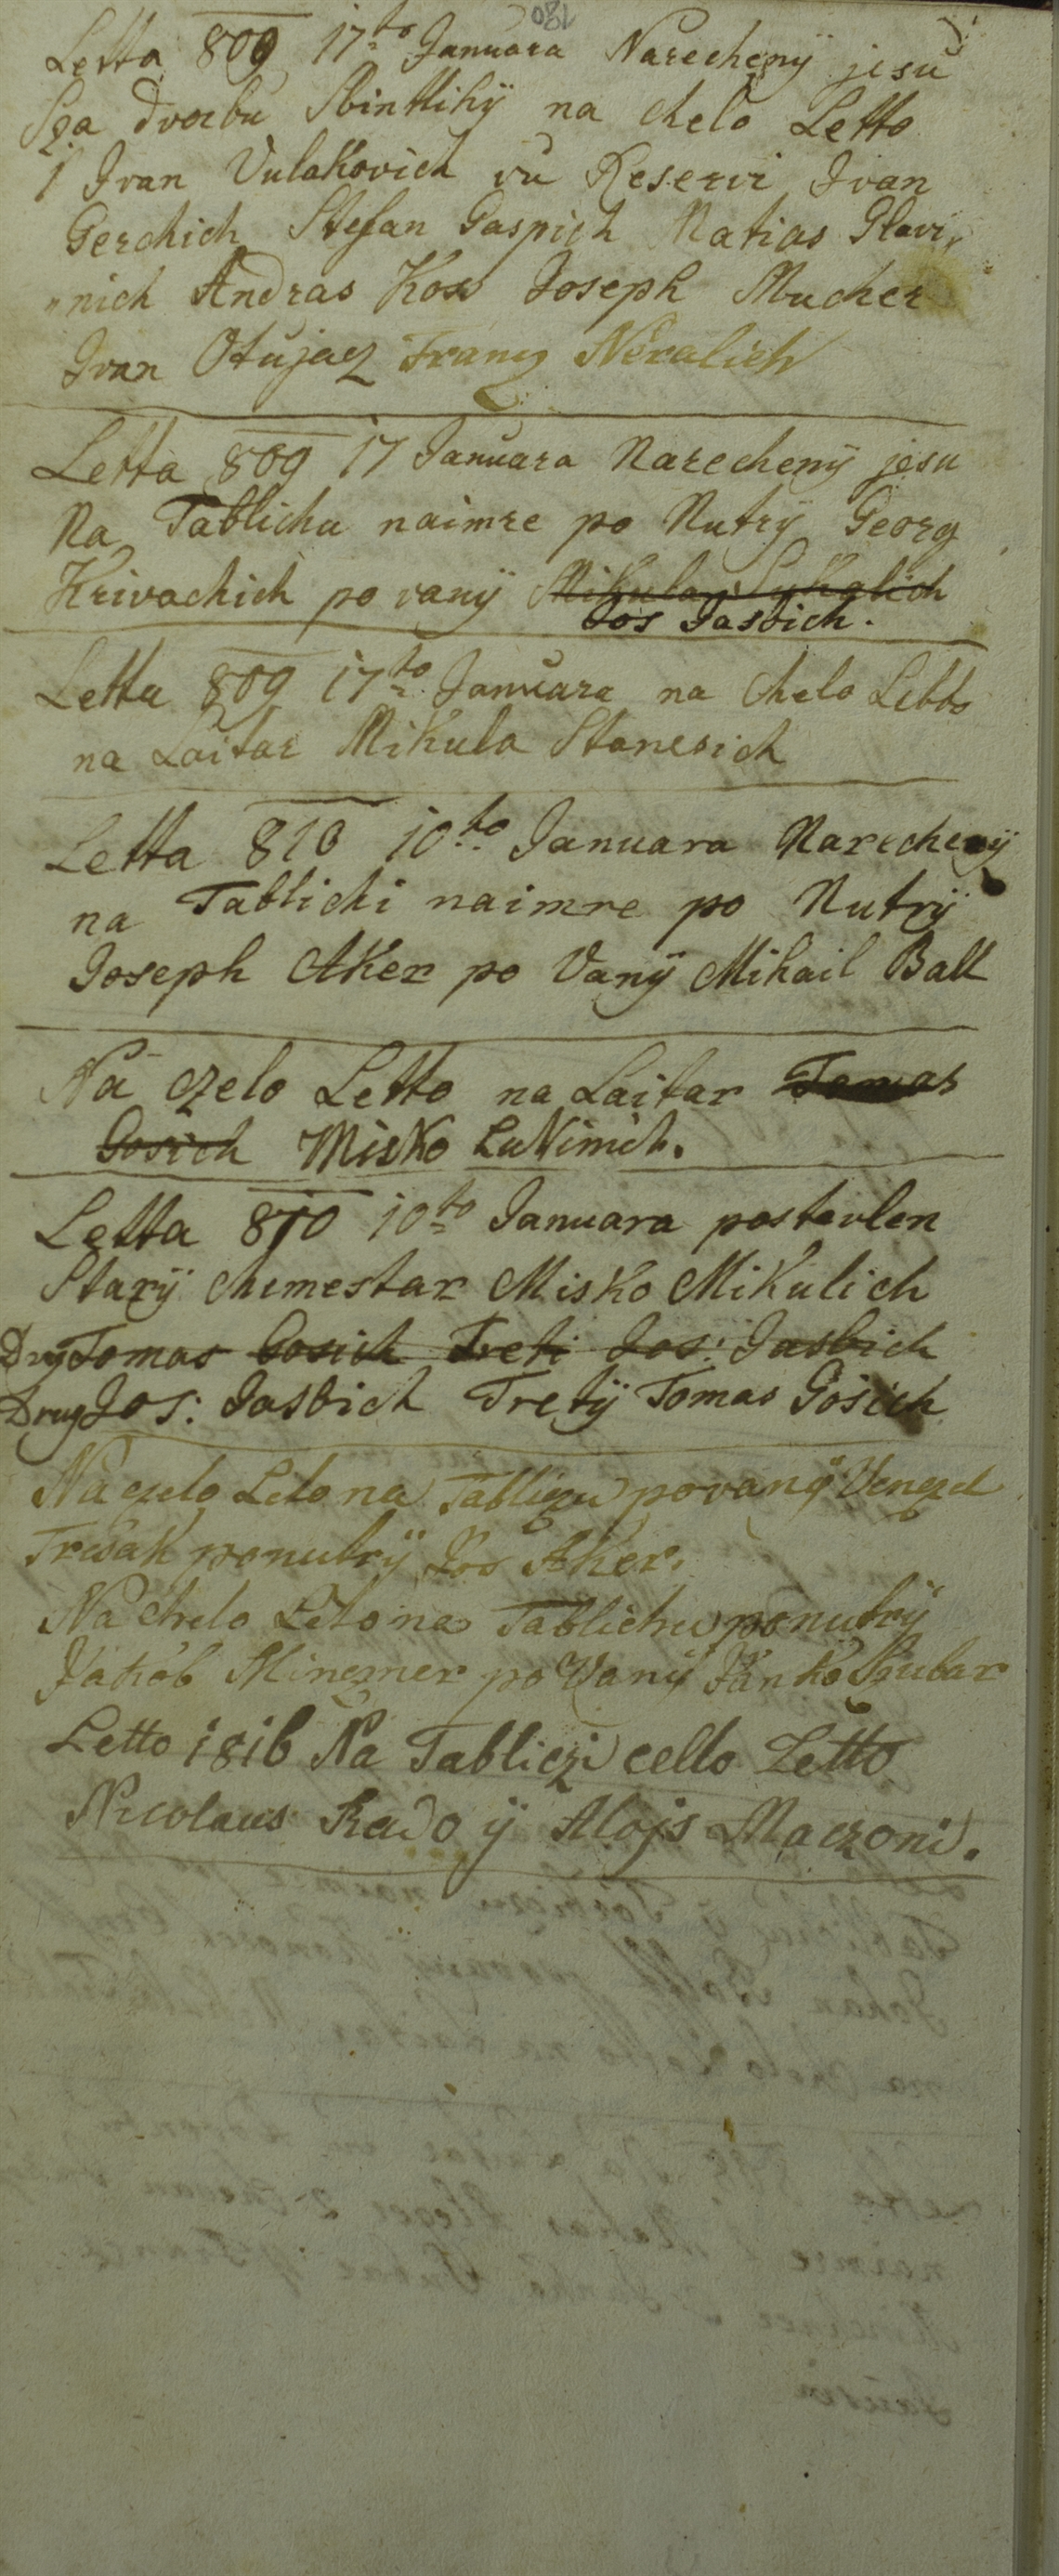 180
Letta 809 17to Januara Narecheny jesu
Sza dvorbu na chelo Letto
1 Ivan Vulakovich vu Reservi Ivan
Gerchich Stefan Gaspich Matias Glavi„
„nich Andras Kos Joseph Mucher
Ivan Otujacz Francz Neralich
Letta 809 17 Januara Narechenÿ jesu
Na Tablichu naimre po Nutrÿ Georg
Krivachich po vanÿ Mikula
Jos Jasbich.
Letta 809 17to Januara na chelo Letto
na Laitar Mikula Stanesich
Letta 810 10to Januara Narechenÿ
na Tablichi naimre po Nutrÿ
Joseph Aker po Vanÿ Mihail Ball
Na czelo Letto na Laitar Tomas
Gosich Misko Lukinich.
Letta 810 10to Januara postavlen
Starÿ chemestar Misko Mikulich
Drug Tomas Gosich Treti Jos: Jasbich
Drug Jos: Jasbich Tretÿ Tomas Gosich
Na czelo Leto na Tabliczu povanÿ Venczel
Tresak ponutrÿ Jos Aker.
Na chelo Leto na Tablichu ponutrÿ
Jakob Minczner po Vanÿ Janko
Letto 1816 Na Tabliczi cello Letto
Nicolaus Rado ÿ Alojs Maczoni.